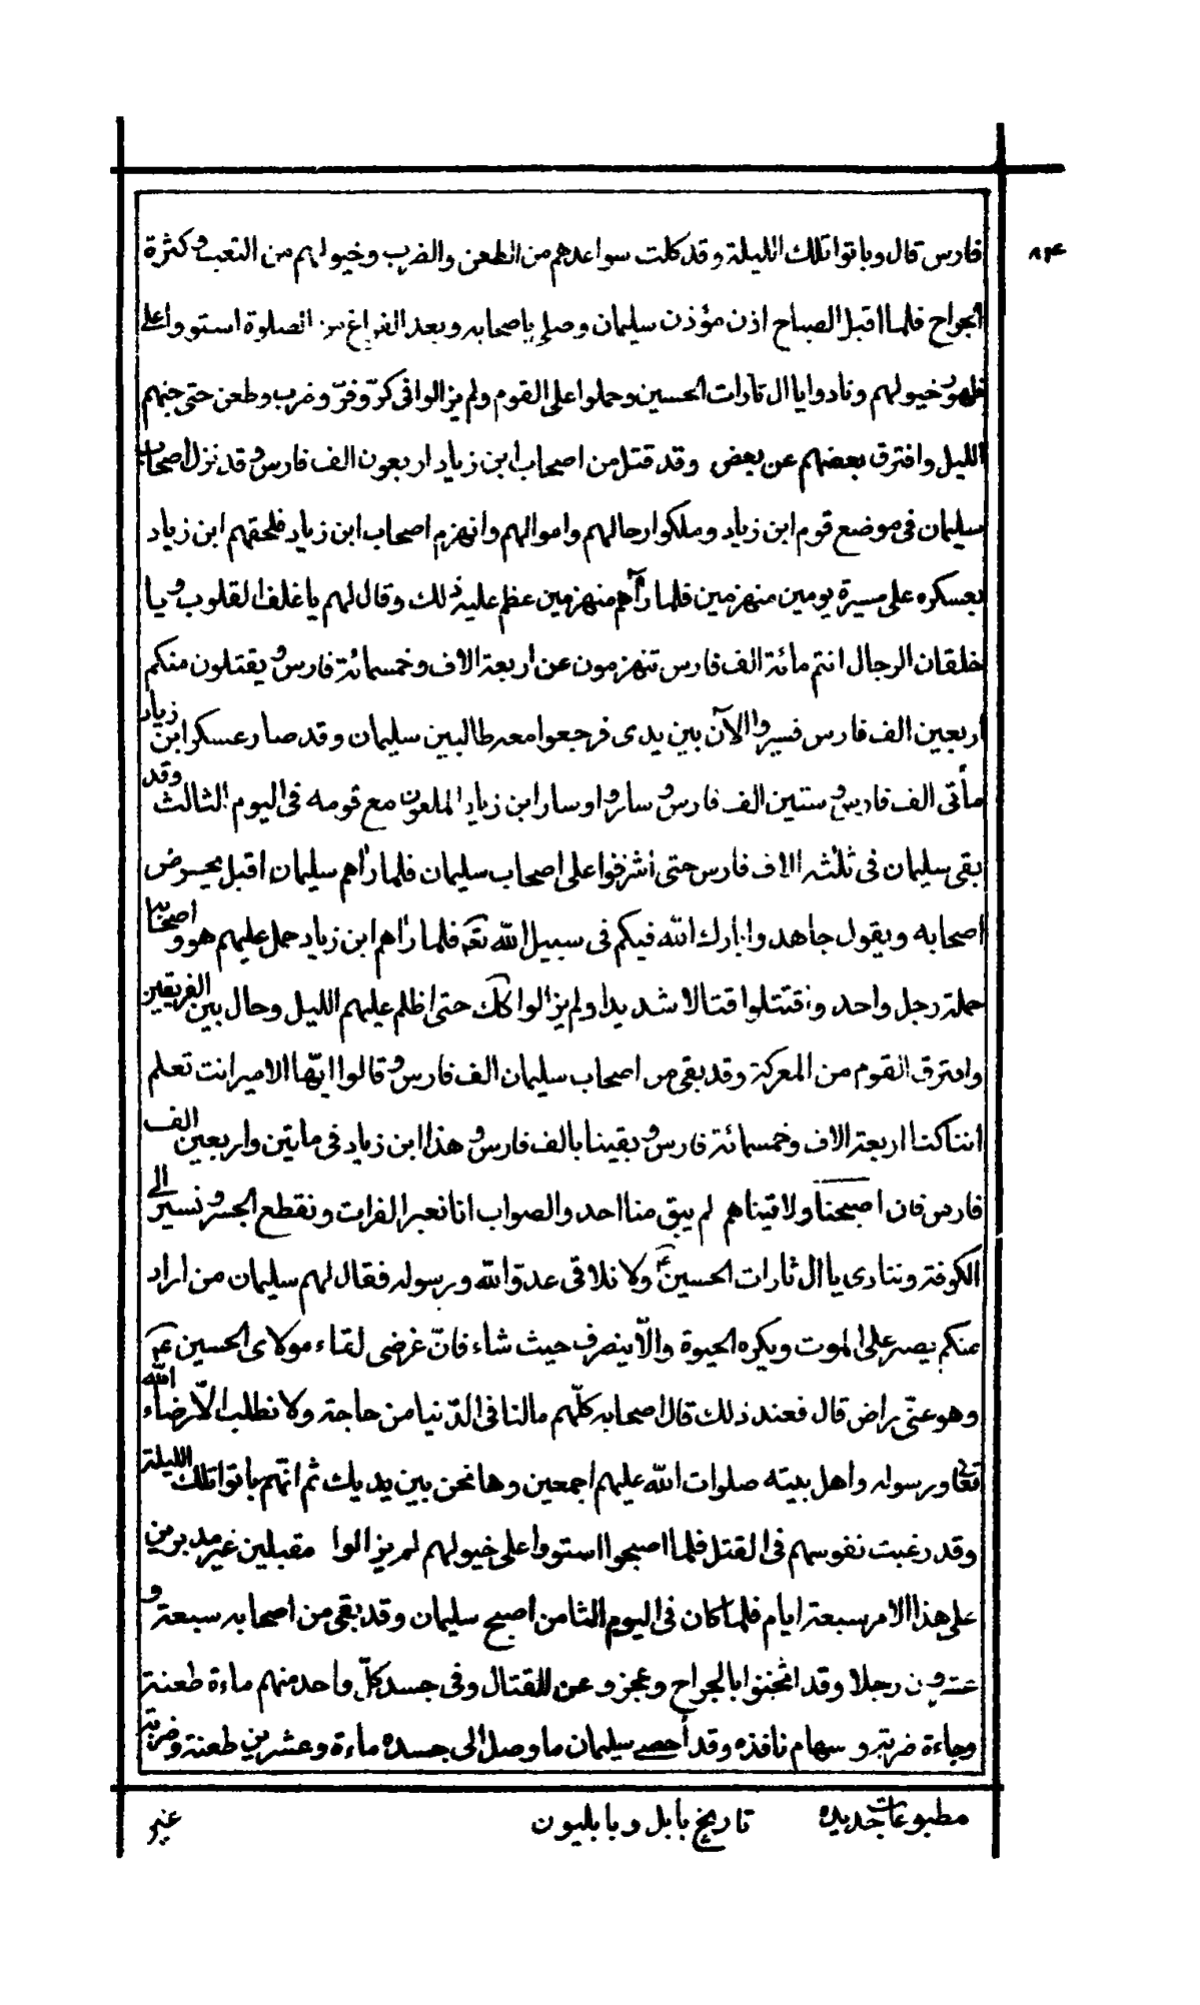 فارس قال وباتوا تلك الليلة وقد كلت سواعدهم من الطعن والضرب وخيولهم من التعب وكثرة
الجراح فلما اقبل الصباح اذن مؤذن سليمان وصلى باصحابه وبعد الفراغ من الصلوة استووا على
ظهور خيولهم ونادوا يا ال ثارات الحسين وحملوا على القوم ولم يزالوا فى كرّ وفرّ وضرب وطعن حتى جنهم
الليل وافترق بعضهم عن بعض وقد قتل من اصحاب ابن زياد اربعون الف فارس وقد نزل اصحاب
سليمان فى موضع قوم ابن زياد وملكوا رحالهم واموالهم وانهزم اصحاب ابن زياد فلحقهم ابن زياد
بعسكره على مسيرة يومين منهزمين فلما رآهم منهزمين عظم عليه ذلك وقال لهم يا غلف القلوب ويا
خلقان الرجال انتم مائة الف فارس تنهزمون عن اربعة الاف وخمسمائة فارس ويقتلون منكم
اربعين الف فارس فسيروا الآن بين يدى فرجعوا معه طالبين سليمان وقد صار عسكر ابن زياد
مأتى الف فارس وستين الف فارس وساروا وسار ابن زياد الملعون مع قومه فى اليوم الثالث وقد
بقى سليمان فى ثلثه الاف فارس حتى اشرفوا على اصحاب سليمان فلما رأهم سليمان اقبل يحرض
اصحابه ويقول جاهدوا بارك الله فيكم فى سبيل الله تعه فلما رأهم ابن زياد حمل عليهم هو واصحابه
حملة رجل واحد واقتتلوا قتالا شديدا ولم يزالوا كك حتى اظلم عليهم الليل وحال بين الفريقين
وافترق القوم من المعركة وقد بقى من اصحاب سليمان الف فارس وقالوا ايّها الامير انت تعلم
اننا كنا اربعة الاف وخمسمائة فارس وبقينا بالف فارس وهذا ابن زياد فى ماتين واربعين الف
فارس فان اصبحنا ولاقيناهم لم يبق منا احد والصواب انا نعبر الفرات ونقطع الجسر ونسير الى
الكوفة وننادى يا ال ثارات الحسين ع ولا نلاقى عدوّ الله ورسوله فقال لهم سليمان من اراد
منكم يصبر على الموت ويكره الحيوة والّا ينصرف حيث شاء فانّ غرضى لقاء مولاى الحسين عم
وهو عنّى راض قال فعند ذلك قال اصحابه كلّهم مالنا فى الدّنيا من حاجة ولا نطلب الّا رضاء الله
تعالى ورسوله واهل بيته صلوات الله عليهم اجمعين وها نحن بين يديك ثم انّهم باتوا تلك الليلة
وقد رغبت نفوسهم فى القتل فلما اصبحوا استووا على خيولهم لم يزالوا مقبلين غير مدبرين
على هذا الامر سبعة ايام فلما كان فى اليوم الثامن اصبح سليمان وقد بقى من اصحابه سبعة و
عشرون رجلا وقد اثخنوا بالجراح وعجزو عن القتال وفى جسد كلّ واحد منهم ماءة طعنة
وماءة ضربة و سهام نافذه وقد أحصى سليمان ما وصل الى جسده ماءة وعشرين طعنة وضربة
مطبوعات جديده تاريخ بابل وبابليون غير